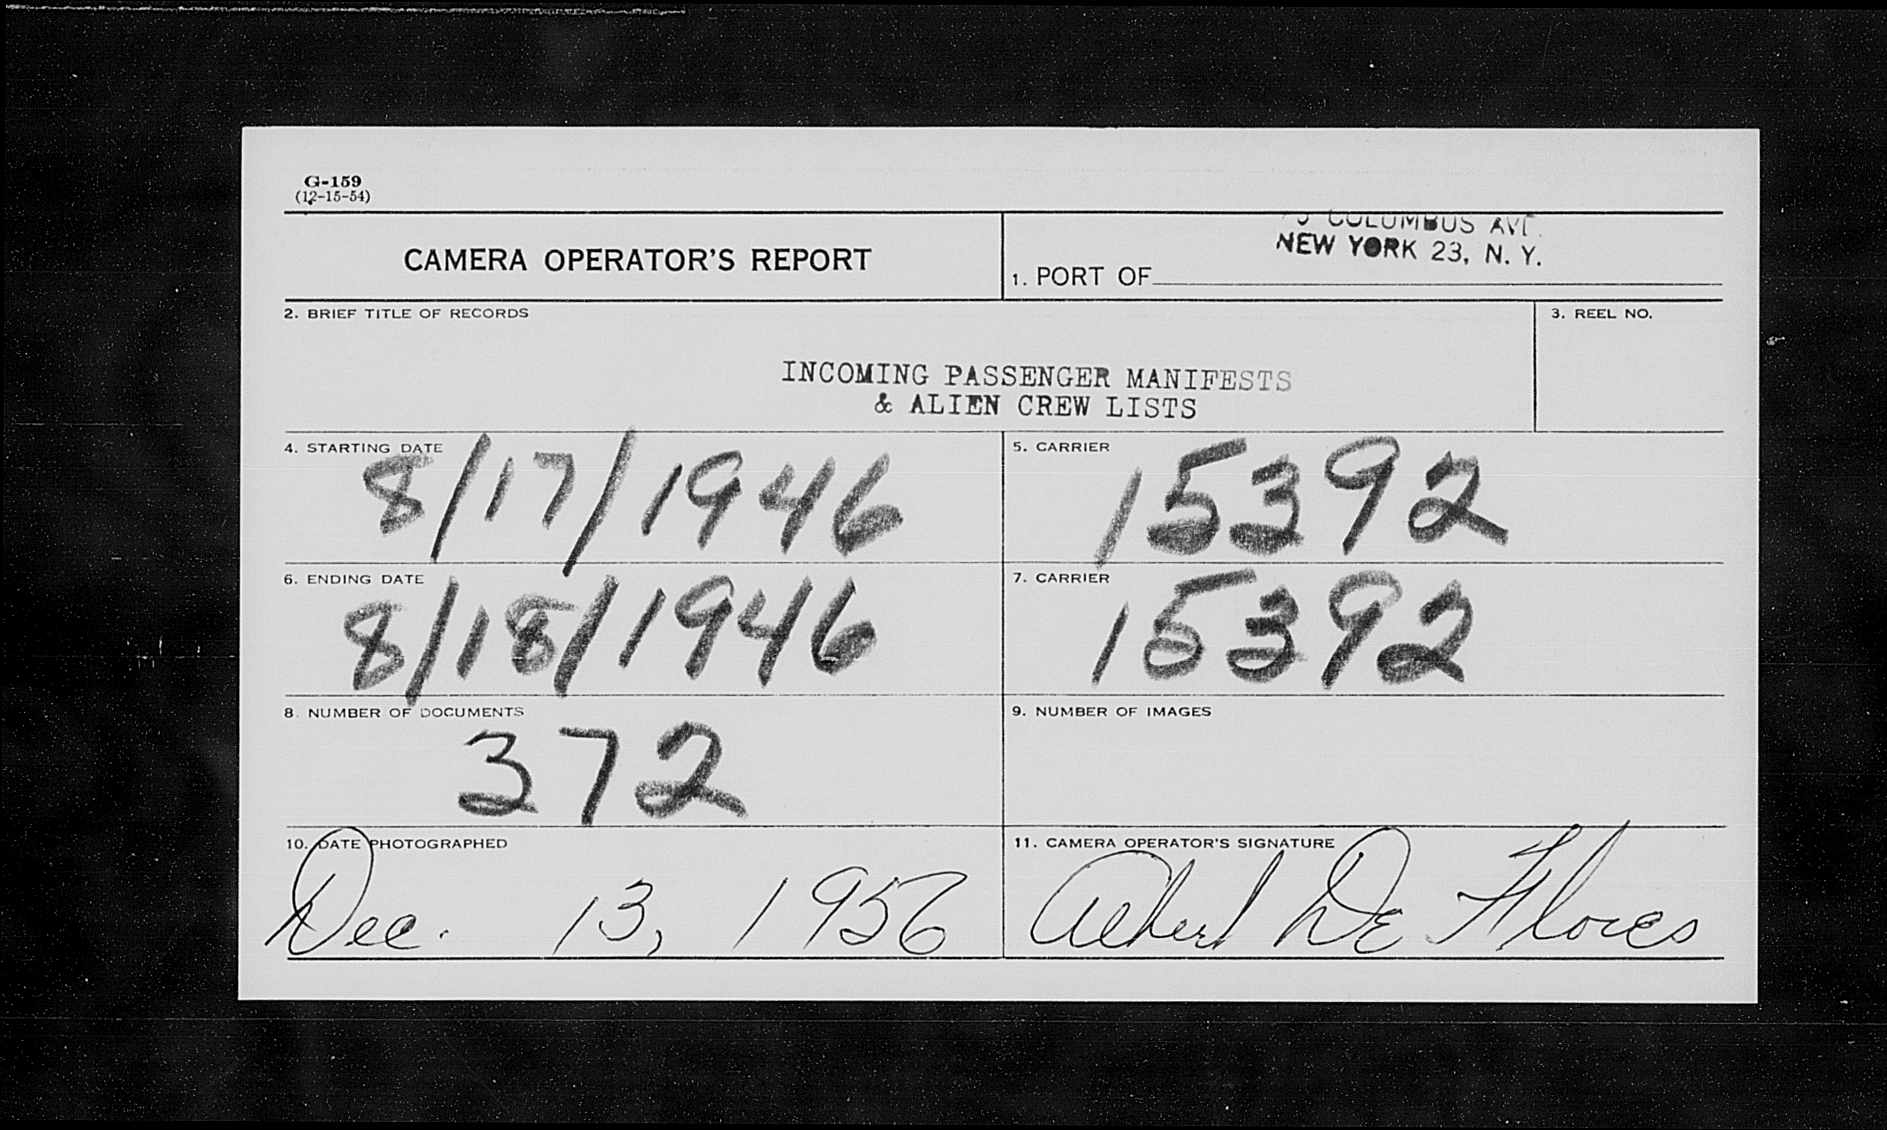 G-159
(12-15-54)
CAMERA OPERATOR'S REPORT
COLUMBUS AVE.
NEW YORK 23, N. Y.
1. PORT OF
2. BRIEF TITLE OF RECORDS
3. REEL NO.
INCOMING PASSENGER MANIFESTS
& ALIEN CREW LISTS
4. STARTING DATE
8/17/1946
5. CARRIER
15392
6. ENDING DATE
8/18/1946
7. CARRIER
15392
8. NUMBER OF DOCUMENTS
372
9. NUMBER OF IMAGES
10. DATE PHOTOGRAPHED
Dec. 13, 1956
11. CAMERA OPERATOR'S SIGNATURE
Albert De Flores